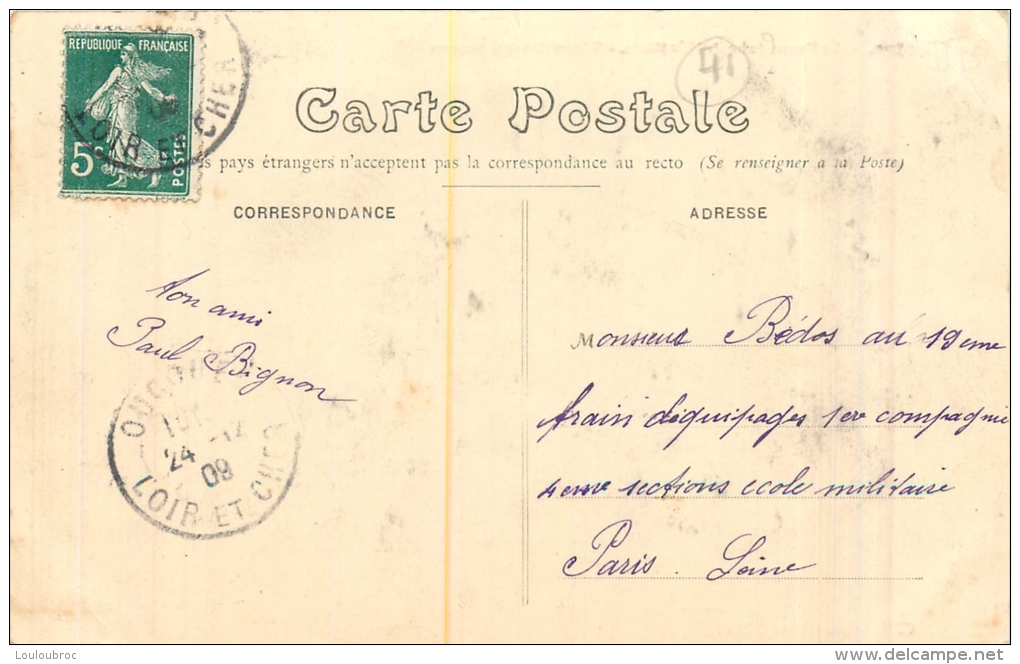 RÉPUBLIQUE FRANÇAISE
5c POSTES
LOIR ET CHER
41
Carte Postale
pays étrangers n'acceptent pas la correspondance au recto (Se renseigner à la Poste)
CORRESPONDANCE
ADRESSE
ton ami
Paul Bignon
24 -12
09
LOIR ET CHER
Monsieur Bédos au 19eme
train déquipages 1ere compagnie
4eme sections ecole militaire
Paris. Seine
Louloubroc
delcampe.net